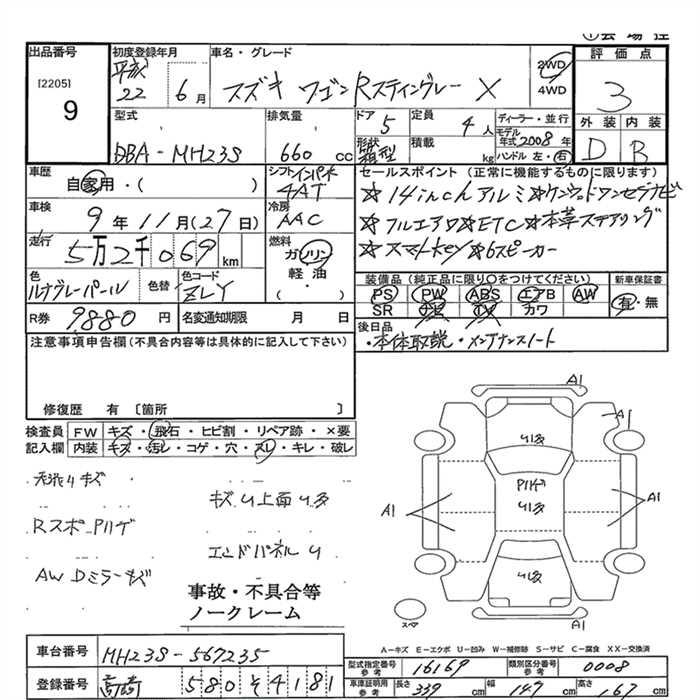 ①会場控
出品番号
[2205]
9
初度登録年月
平成
22 6月
車名・グレード
スズキ ワゴンRスティングレー X
2WD
4WD
評価点
3
外装 内装
D B
型式
DBA-MH23S
排気量
660 cc
ドア
5
定員
4人
形状
箱型
積載
kg
ディーラー・並行
モデル
年式2008年
ハンドル 左・右
車歴
自家用・( )
シフト インパネ
4AT
車検
9年11月(27日)
冷房
AAC
走行
5万2千069km
燃料
ガソリン
軽油
( )
色
ルナグレーパール
色替
色コード
ZLY
R券 9880円
名変通知期限 月 日
セールスポイント(正常に機能するものに限ります)
☆14inchアルミ☆ケンウッドワンセグナビ
☆フルエアロ☆ETC☆本革ステアリング
☆スマートkey☆6スピーカー
装備品(純正品に限り○をつけてください)
PS PW ABS エアB AW
SR ナビ TV カワ
新車保証書
有・無
後日品
・本体取説・メンテナンスノート
注意事項申告欄(不具合内容等は具体的に記入して下さい)
修復歴 有 〔箇所 〕
検査員
記入欄
FW キズ・飛石・ヒビ割・リペア跡・×要
内装 キズ・汚レ・コゲ・穴・スレ・キレ・破レ
天洗リキズ
Rスポ Pハゲ
AW Dミラーキズ
キズU上面U多
エンドパネルU
事故・不具合等
ノークレーム
A1
A1
U多
Pハゲ
U多
A1
A1
U多
スペア
A1
A-キズ E-エクボ U-凹み W-補修跡 S-サビ C-腐食 XX-交換済
車台番号
MH23S-567235
登録番号
高崎 580そ4181
型式指定番号
参考
16169
類別区分番号
参考
0008
車庫証明用
参考
長さ 339cm
幅 147cm
高さ 167cm